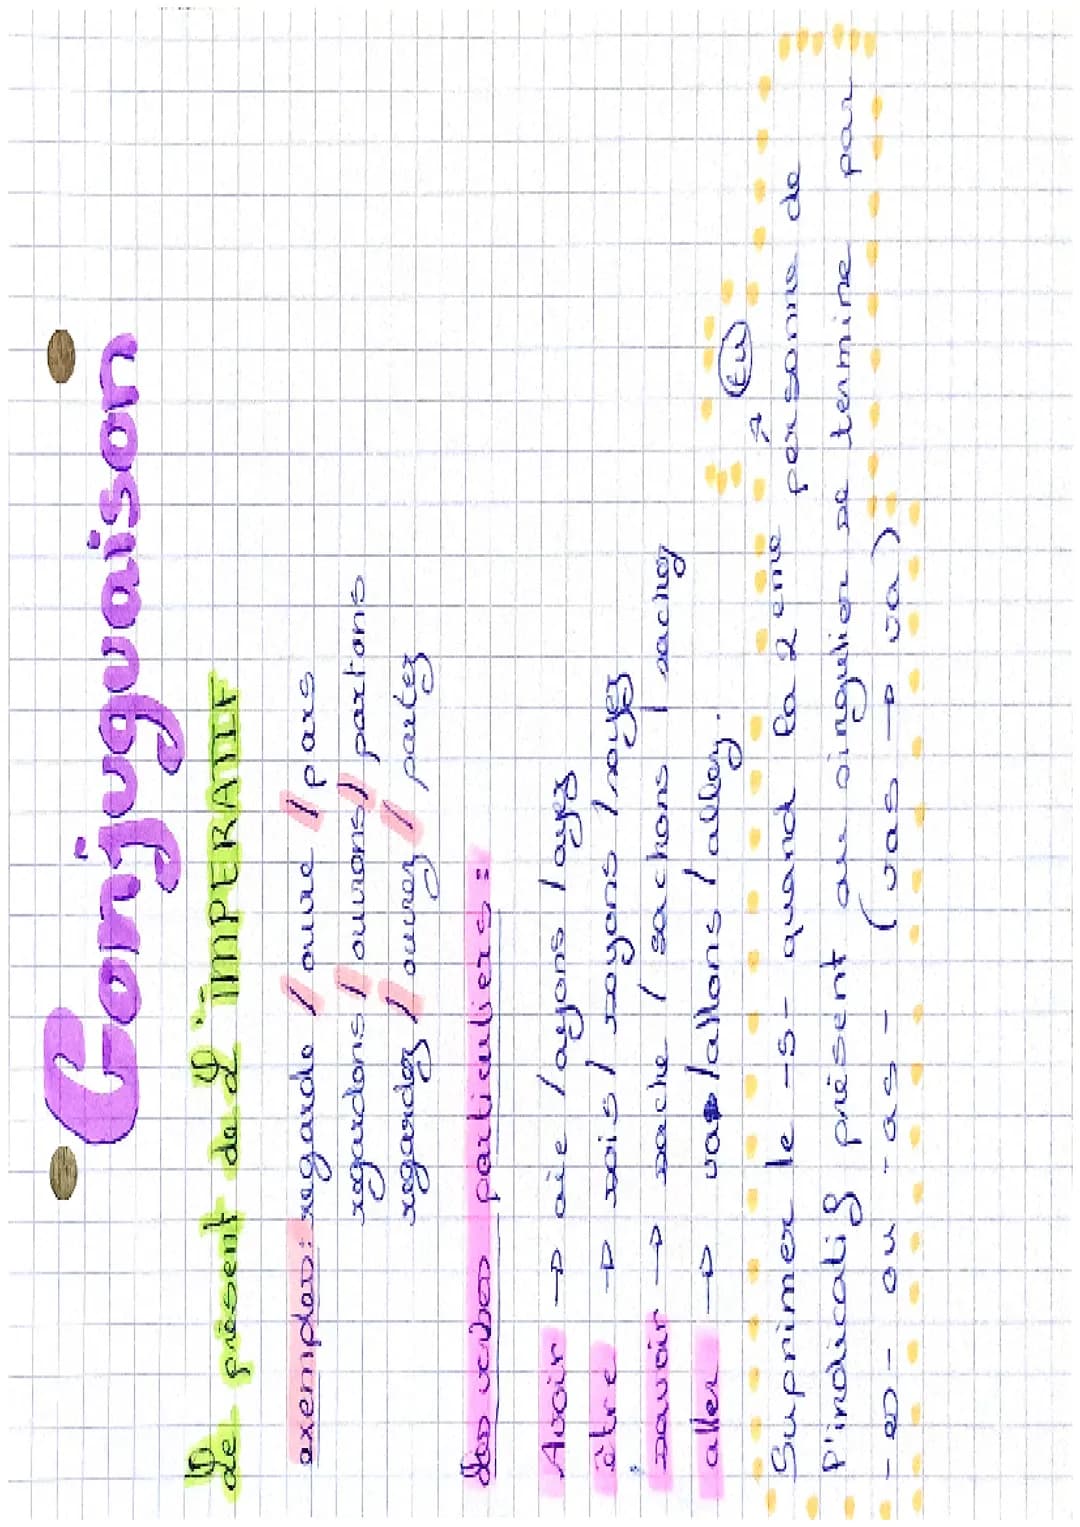 Conjuguaison
Le présent de L'IMPERATIF
exemples: regarde / ouvre / pars
regardons / ouvrons / partons
regardez / ouvrez / partez
Les verbes particuliers :
Avoir → aie / ayons / ayez
être → sois / soyons / soyez
savoir → sache / sachons / sachez
aller → va / allons / allez.
EW
Suprimer le -s- quand la 2eme personne de
l'indicatif présent au singulier se termine par
-es- ou -as- (vas → va)